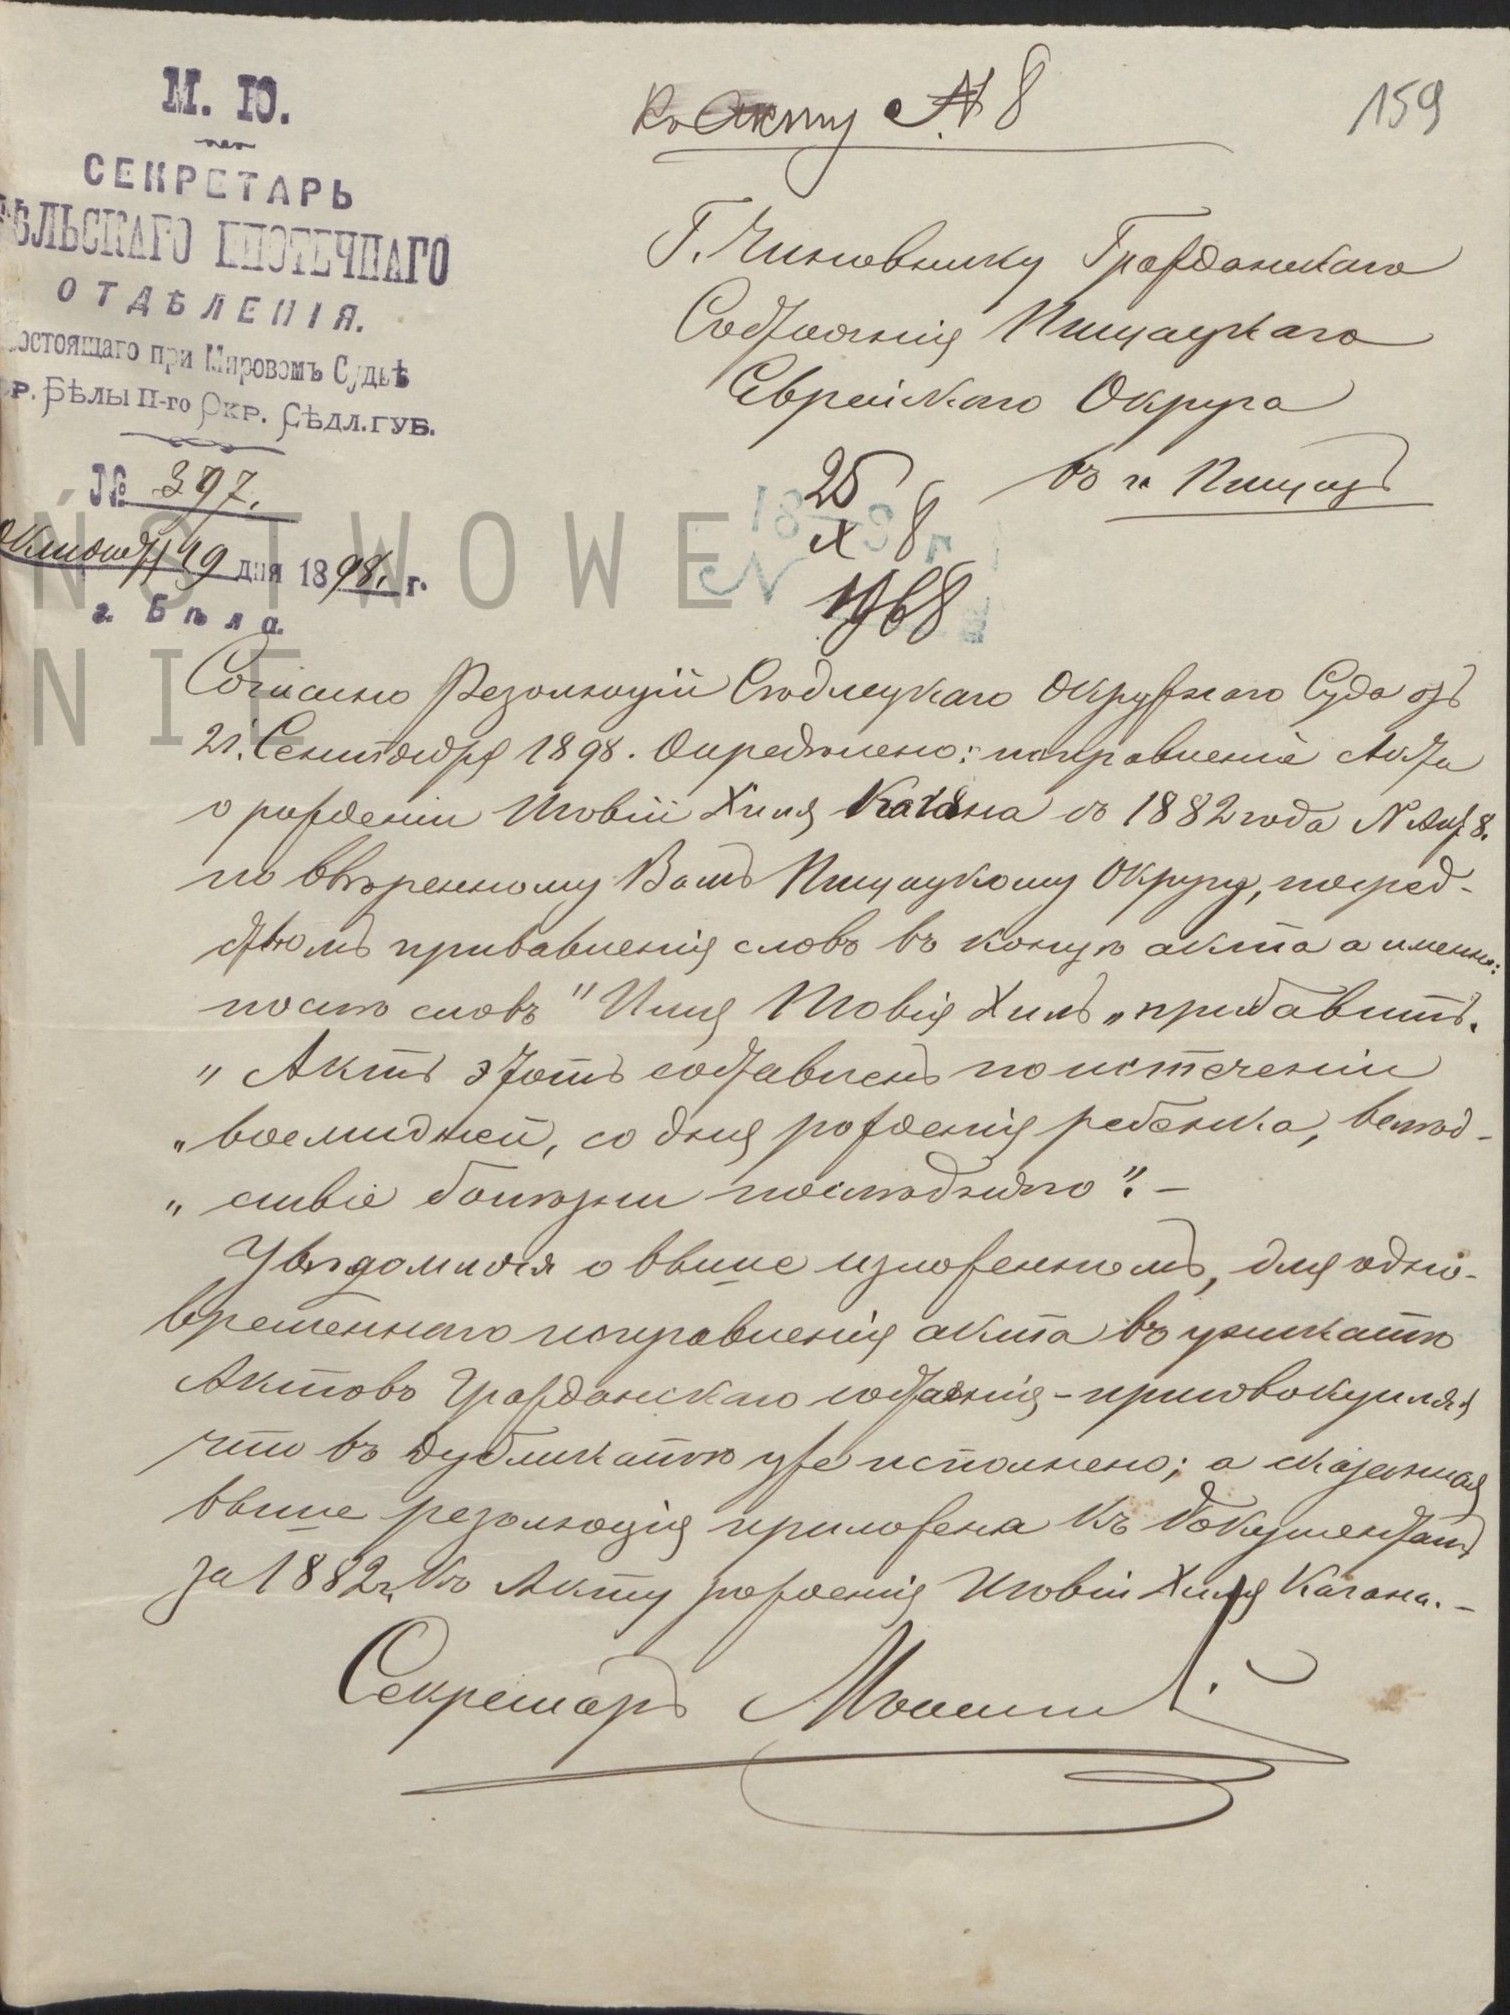 М. Ю.
СЕКРЕТАРЬ
БѢЛЬСКАГО ИПОТЕЧНАГО
ОТДѢЛЕНІЯ.
состоящаго при Мировомъ Судьѣ
гр. Бѣлы II-го Окр. Сѣдл. губ.
№ 397.
Октября 19 дня 1898. г.
г. Бѣла.
Къ Акту № 8
159
Г. Чиновнику Гражданскаго
Состоянія Пищацкаго
Еврейскаго Округа
въ г. Пищацъ
25
X 8
1968
ŃSTWOWE
NIE
Согласно Резолюціи Сѣдлецкаго Окружнаго Суда отъ
21. Сентября 1898. Опредѣлено: исправленіе Акта
о рожденіи Товіи Хиля Кагана съ 1882 года № Акт. 8.
по ввѣренному Вамъ Пищацкому Округу, посред-
ствомъ прибавленія словъ въ концѣ акта а именно:
послѣ словъ "Имя Товія Хиль" прибавить.
"Актъ этотъ составленъ по истеченіи
"восьми дней, со дня рожденія ребенка, вслѣд-
"ствіе болѣзни послѣдняго". -
Увѣдомляя о выше изложенномъ, для одно-
временнаго исправленія акта въ уникатѣ
Актовъ Гражданскаго состоянія - присовокупляя
что въ дубликатѣ уже исполнено; а сказанная
выше резолюція приложена къ документамъ
за 1882 г. къ Акту рожденія Товіи Хиля Кагана. -
Секретарь